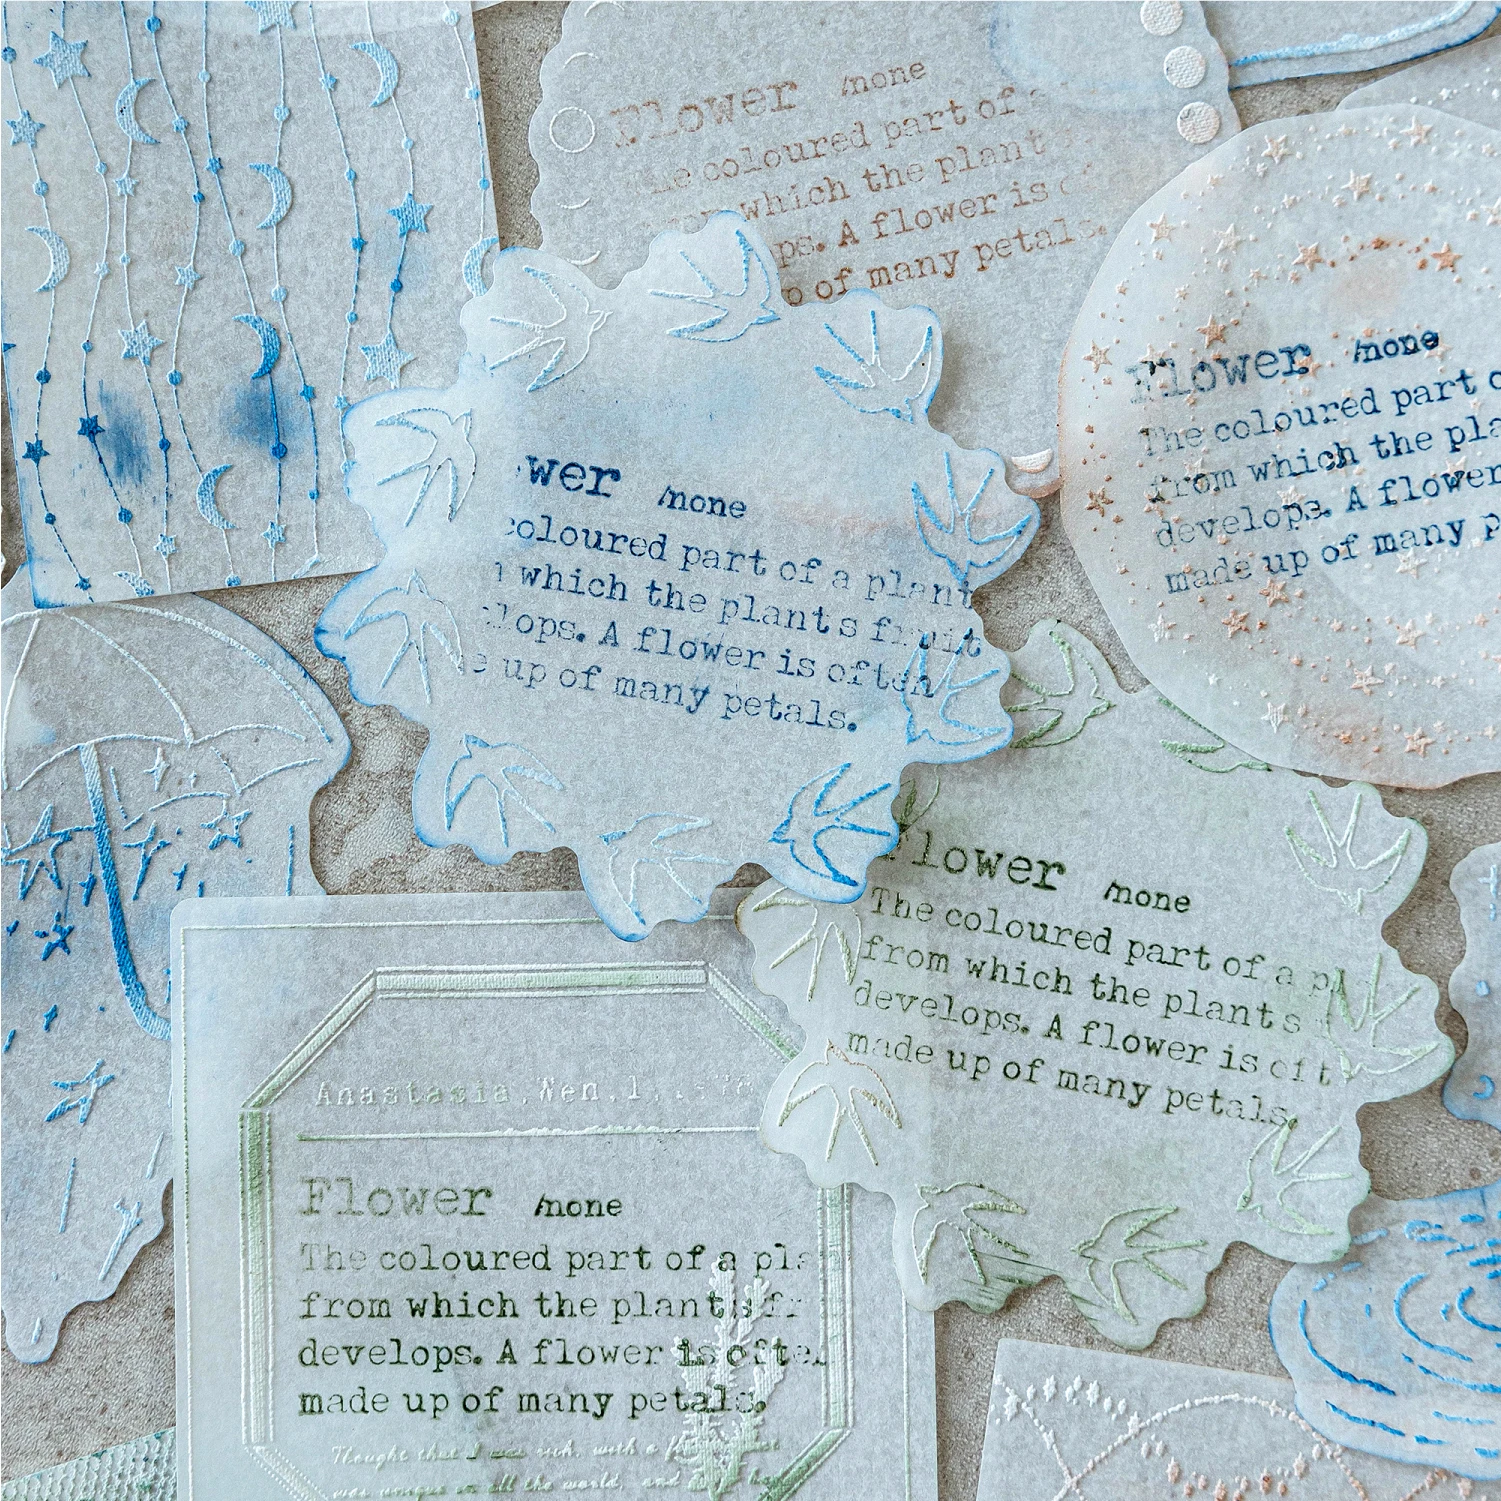 Flower /none
coloured part of
which the plant
ps. A flower is
of many petals.
Flower /none
The coloured part
from which the pla
develops. A flower
made up of many p
wer /none
coloured part of a plant
which the plants fruit
lops. A flower is often
e up of many petals.
Flower /none
The coloured part of a pl
from which the plants
develops. A flower is oft
made up of many petals.
Anastasia, Wen, 1,
Flower /none
The coloured part of a plan
from which the plants fr
develops. A flower is often
made up of many petals.
Thought that I was rich, with a
was unique in all the world, and